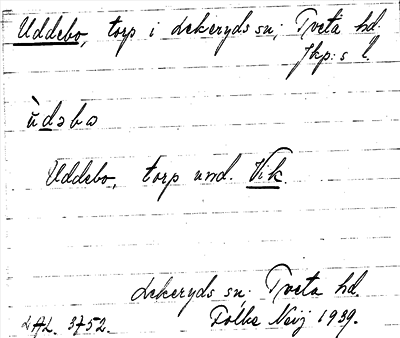 Uddebo, torp i Lekeryds sn; Tveta hd.
Jkp:s l.
ùdəbω
Uddebo, torp und. Vik.
Lekeryds sn. Tveta hd.
LAL. 3752. Folke Neij 1939.